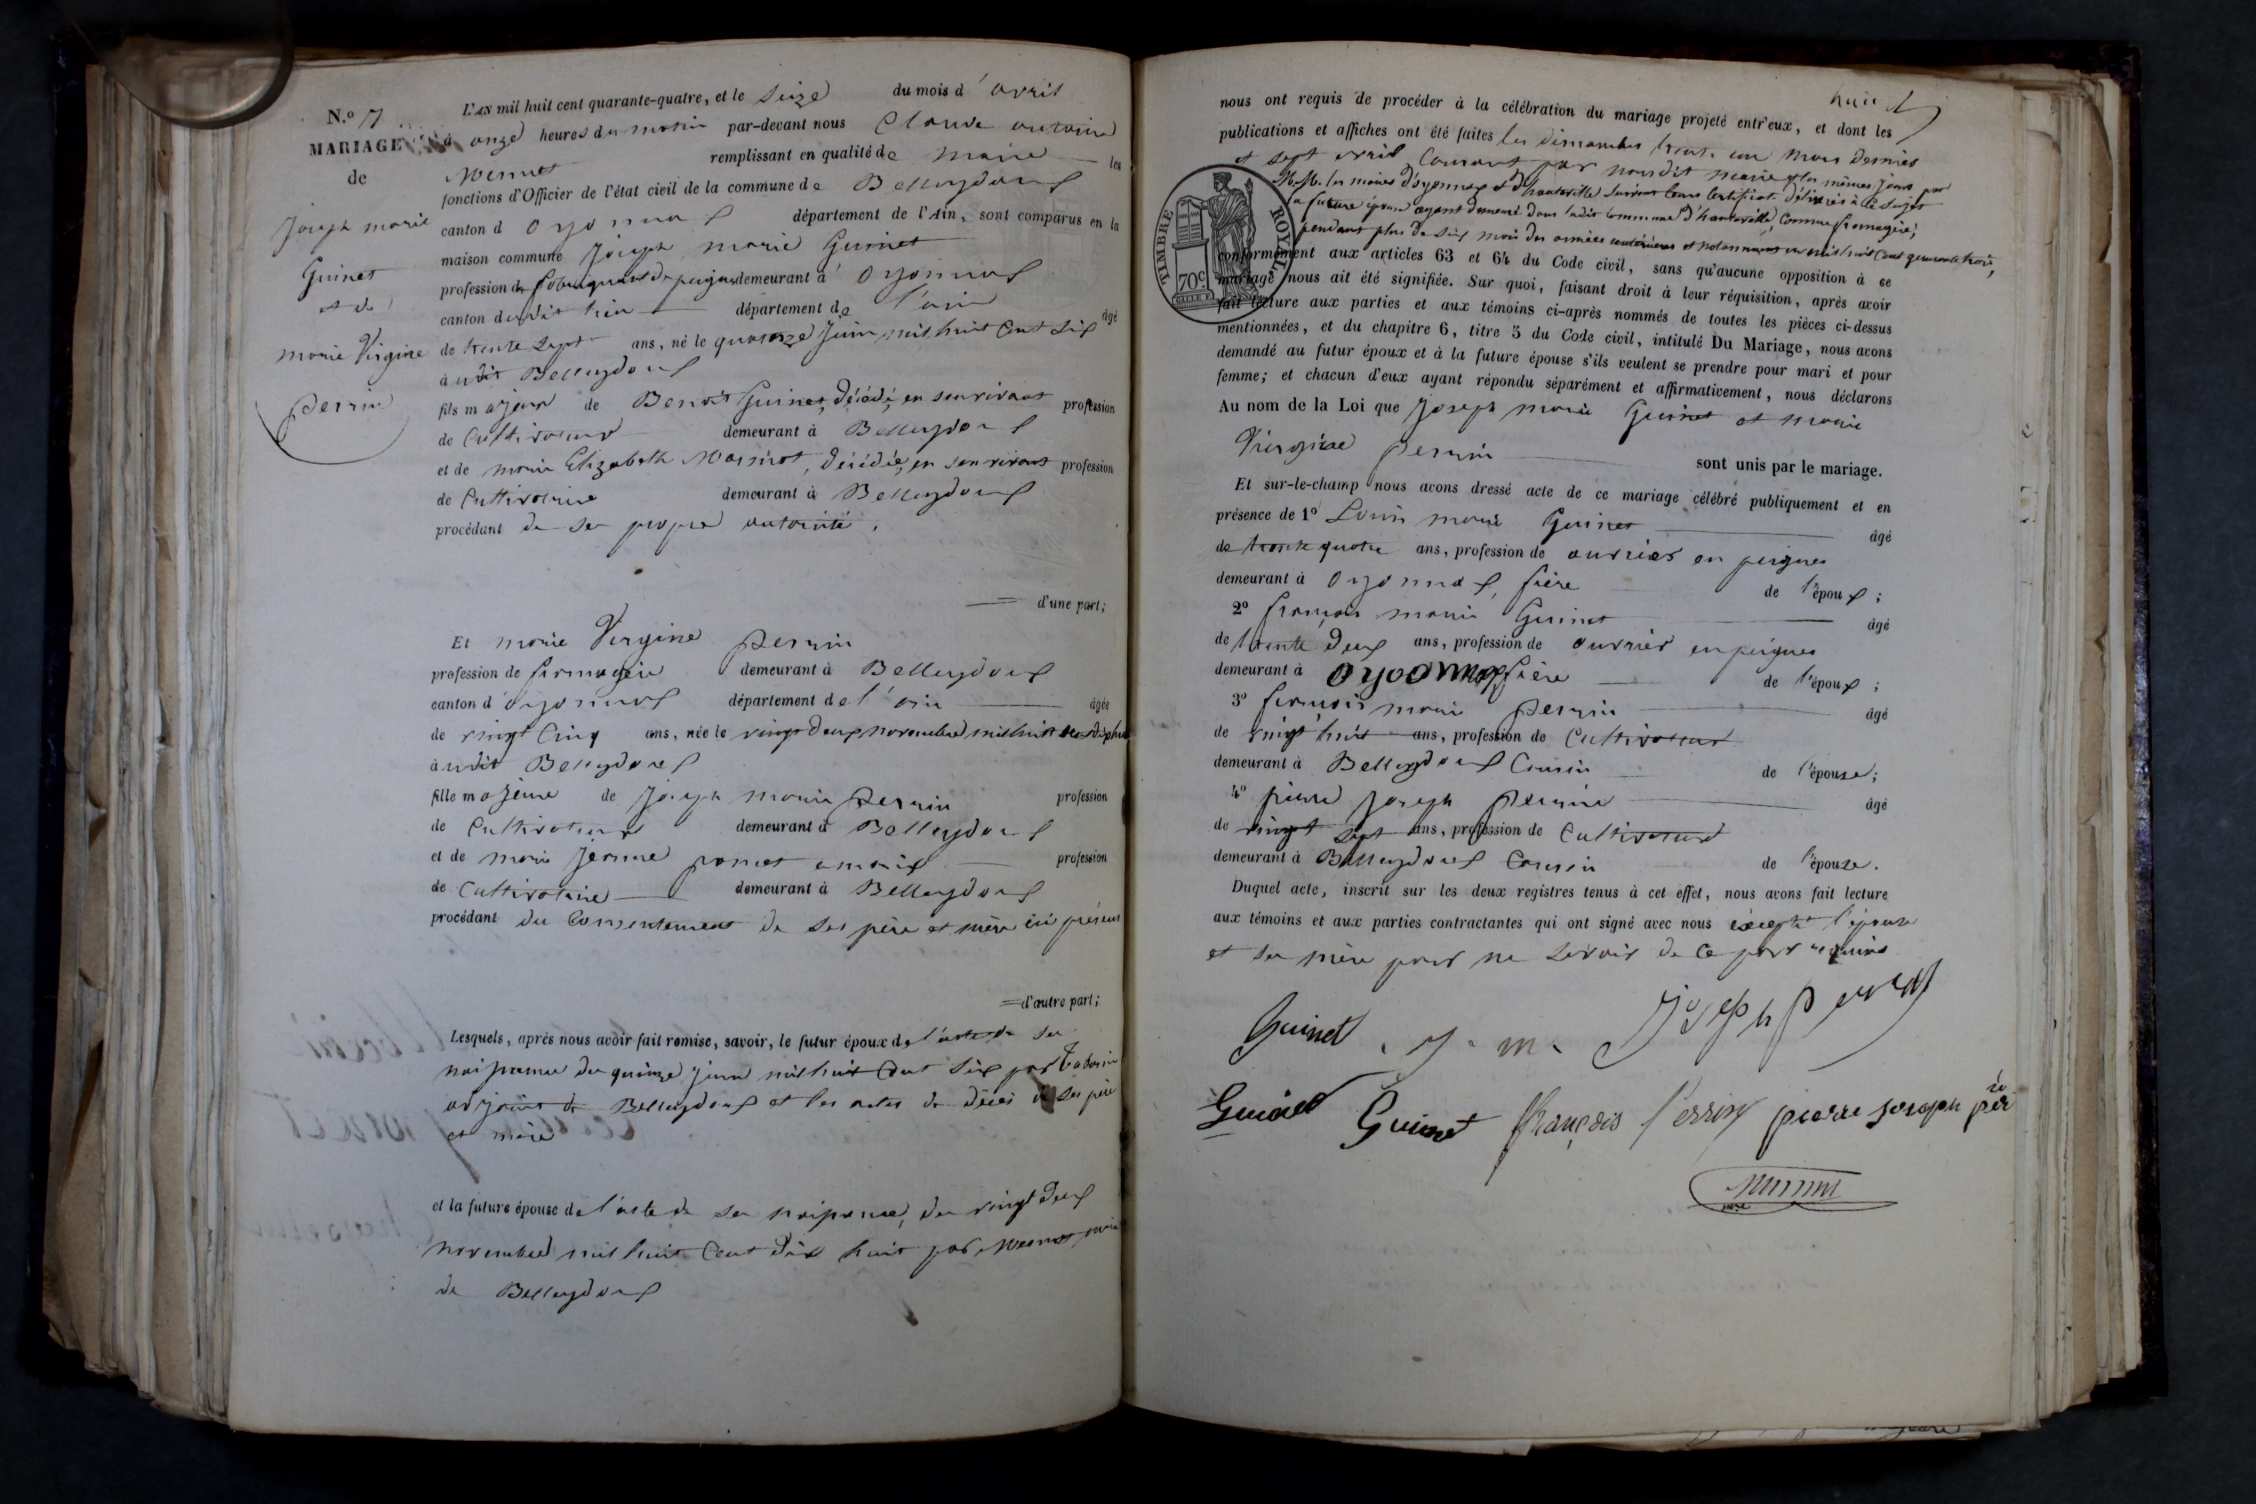 N.º 7
MARIAGE
de
Joseph marie
Guinet
et de
marie Virginie
perrin
L'AN mil huit cent quarante-quatre, et le seize du mois d'avril
à onze heures du matin par-devant nous Claude antoine
Mermet remplissant en qualité de maire les
fonctions d'Officier de l'état civil de la commune de Belleydoux
canton d oyonnax département de l'Ain, sont comparus en la
maison commune Joseph marie Guinet
profession de fabriquant de peignes demeurant à oyonnax
canton dudit lieu département de l'ain âgé
de trente sept ans, né le quatorze juin mil huit cent six
à udit Belleydoux
fils majeur de Benoit Guinet, décédé, en son vivant profession
de Cultivateur demeurant à Belleydoux
et de marie Elizabeth Mermet, décédée, en son vivant profession
de Cultivatrice demeurant à Belleydoux
procédant de sa propre autorité.
d'une part;
Et marie Virginie perrin
profession de fromagère demeurant à Belleydoux
canton d'oyonnax département de l'ain âgée
de vingt Cinq ans, née le vingt deux novembre mil huit cent dix huit
à udit Belleydoux
fille majeure de Joseph marie perrin profession
de Cultivateur demeurant à Belleydoux
et de marie Jeanne poncet profession
de Cultivatrice demeurant à Belleydoux
procédant du Consentement de ses père et mère ici présens
d'autre part;
Lesquels, après nous avoir fait remise, savoir, le futur époux de l'acte de sa
naissance du quinze juin mil huit Cent six par
adjoint de Belleydoux et les actes de décès de ses père
et mère
et la future épouse de l'acte de sa naissance, du vingt deux
novembre mil huit Cent dix huit par Mermet maire
de Belleydoux
huit
nous ont requis de procéder à la célébration du mariage projeté entr'eux, et dont les
publications et affiches ont été faites les dimanches trente un mars dernier
et sept avril Courant par nous dit maire et les mêmes jours par
M.M. les maires d'oyonnax et d'hauteville suivant leurs Certificats délivrés à ce sujet
la future épouse ayant demeuré dans ladite commune d'hauteville, Comme fromagère,
pendant plus de six mois des années antérieures et notamment en mil huit Cent quarante trois,
TIMBRE ROYAL
70 c.
conformément aux articles 63 et 64 du Code civil, sans qu'aucune opposition à ce
mariage nous ait été signifiée. Sur quoi, faisant droit à leur réquisition, après avoir
fait lecture aux parties et aux témoins ci-après nommés de toutes les pièces ci-dessus
mentionnées, et du chapitre 6, titre 5 du Code civil, intitulé Du Mariage, nous avons
demandé au futur époux et à la future épouse s'ils veulent se prendre pour mari et pour
femme; et chacun d'eux ayant répondu séparément et affirmativement, nous déclarons
Au nom de la Loi que Joseph marie Guinet et marie
Virginie perrin sont unis par le mariage.
Et sur-le-champ nous avons dressé acte de ce mariage célébré publiquement et en
présence de 1º Louis marie Guinet âgé
de trente quatre ans, profession de ouvrier en peignes
demeurant à oyonnax, frère de l'époux;
2º françois marie Guinet âgé
de trente deux ans, profession de ouvrier en peignes
demeurant à oyonnax frère de l'époux;
3º françois marie perrin âgé
de vingt huit ans, profession de Cultivateur
demeurant à Belleydoux Cousin de l'épouse;
4º pierre Joseph perrin âgé
de vingt sept ans, profession de Cultivateur
demeurant à Belleydoux Cousin de l'épouse.
Duquel acte, inscrit sur les deux registres tenus à cet effet, nous avons fait lecture
aux témoins et aux parties contractantes qui ont signé avec nous excepté l'épouse
et sa mère pour ne savoir de ce par requis
Guinet . J. m. Joseph perrin
Guinet Guinet françois Perrin pierre joseph
Mermet